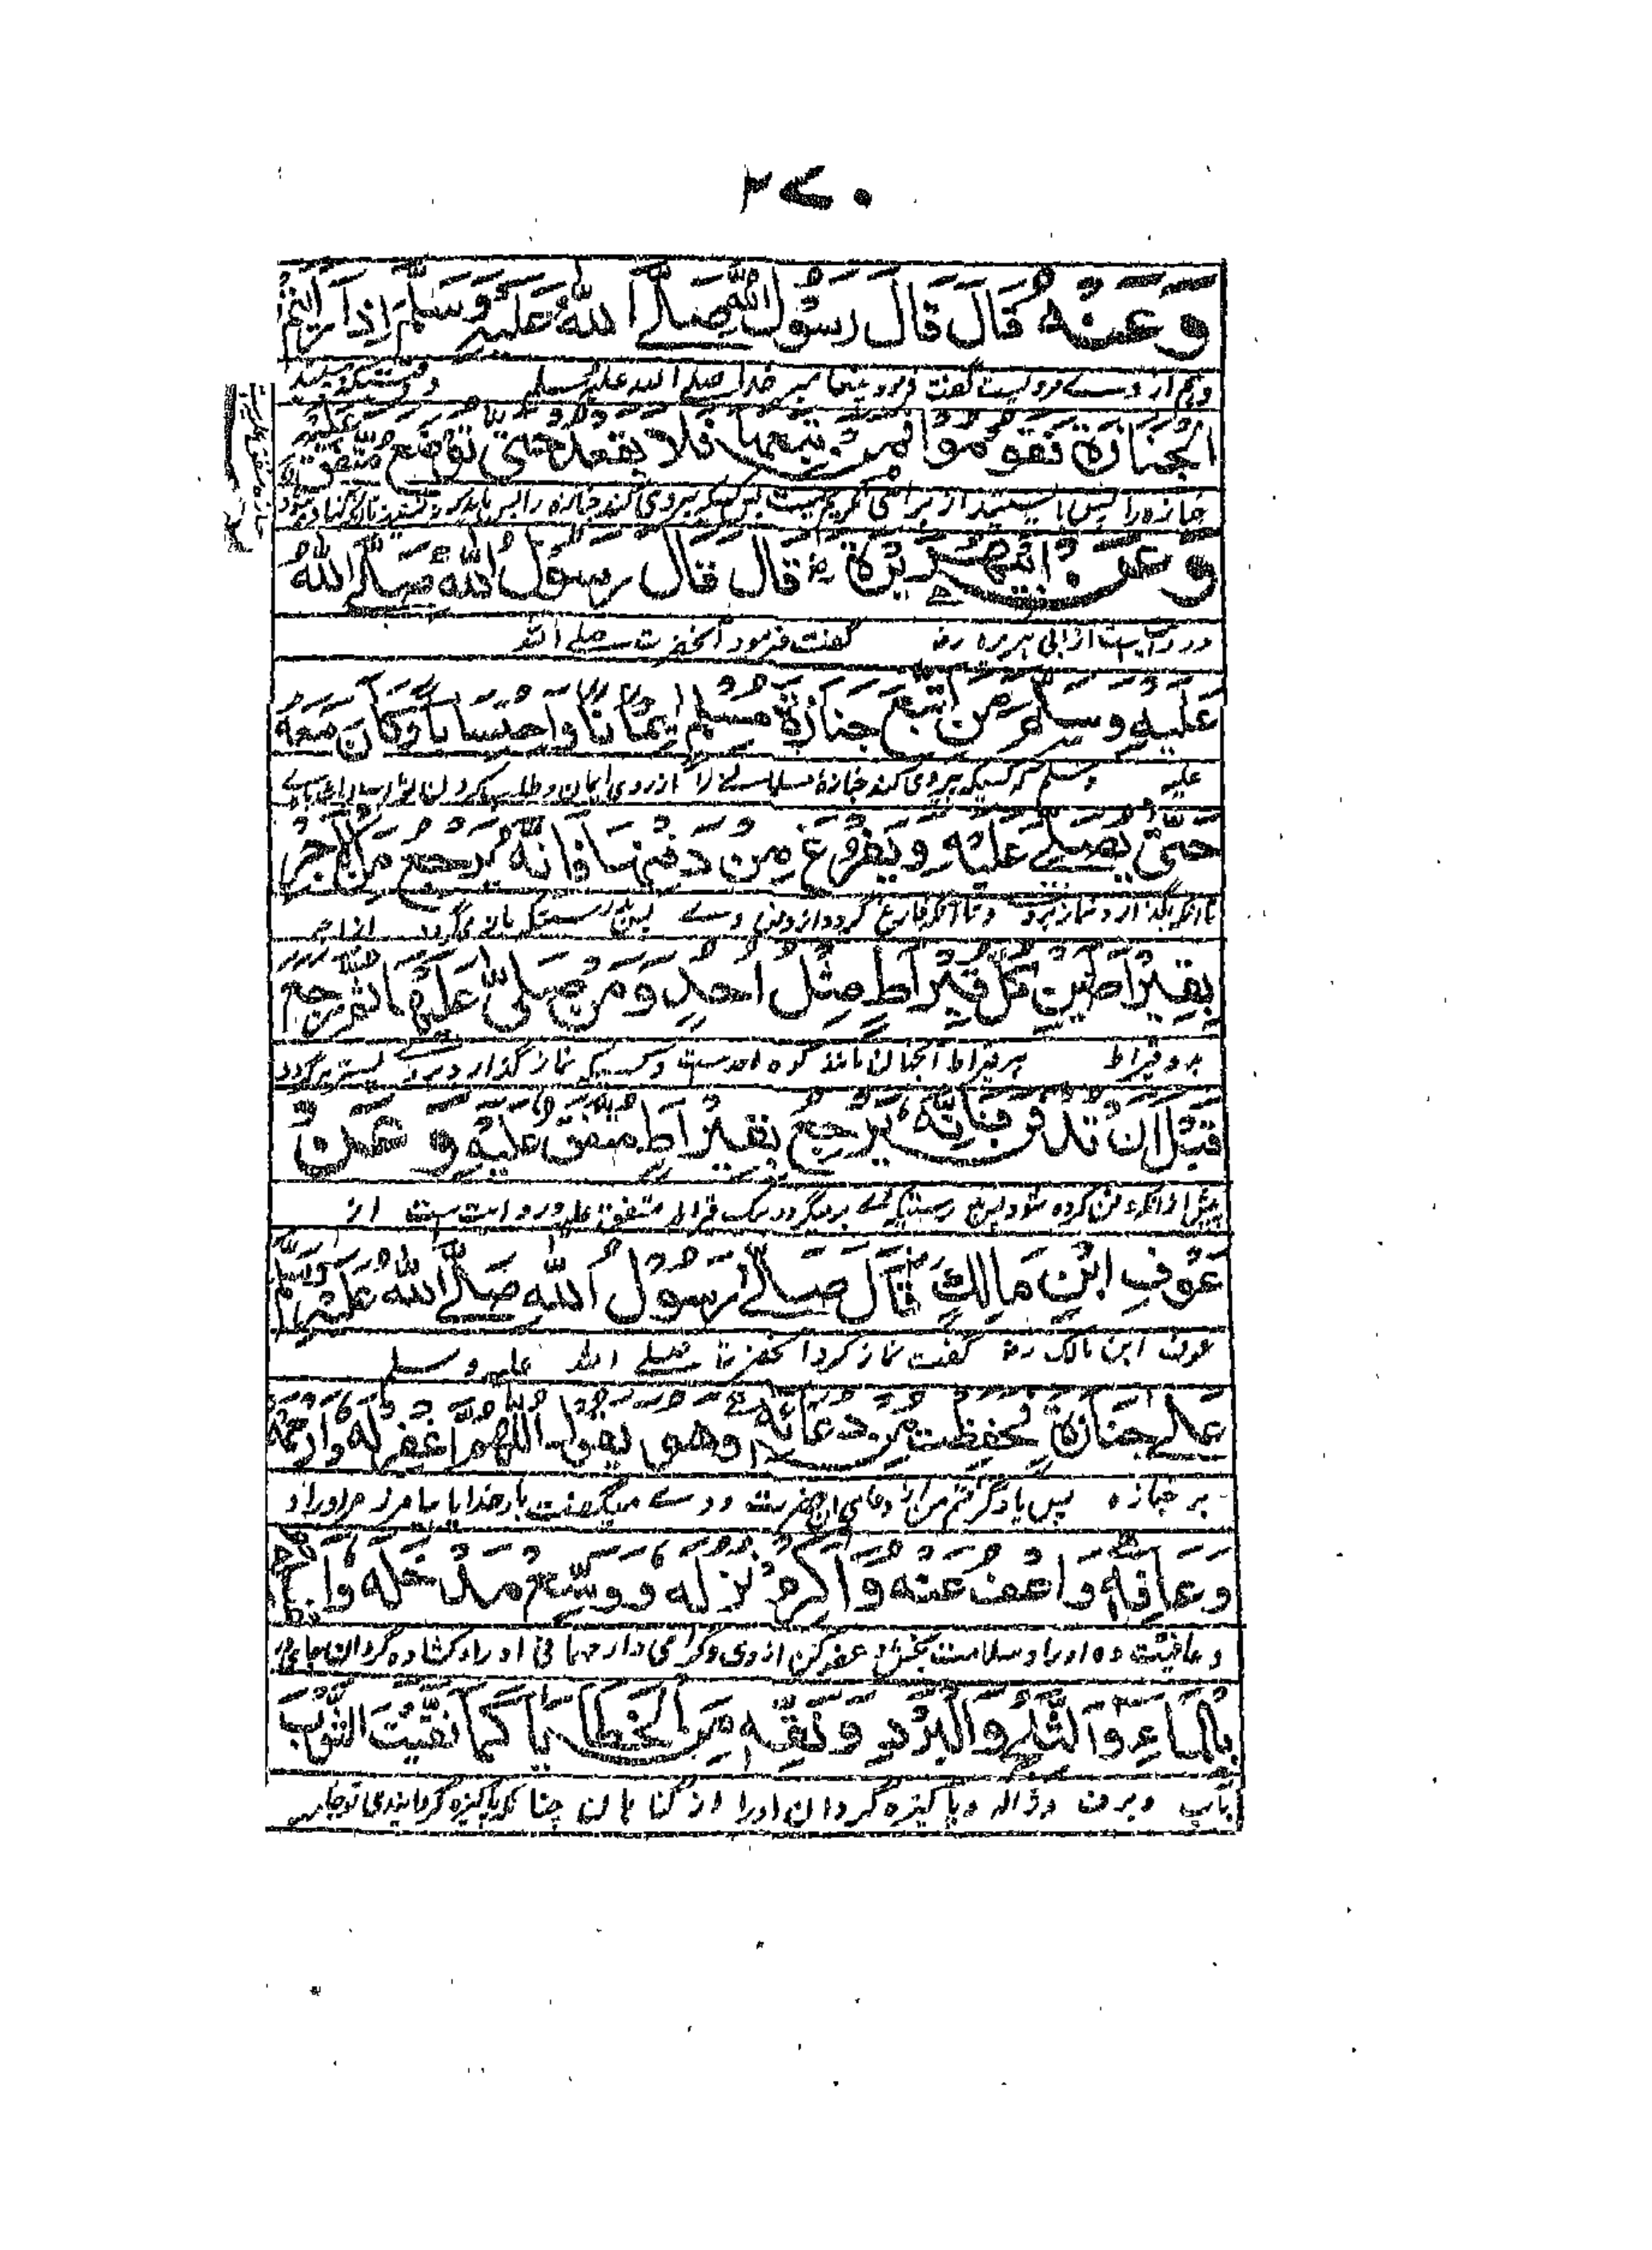 ۲۷۰
وَعَنْهُ قَالَ قَالَ رَسُوْلُ اللهِ صَلَّے اللهُ عَلَيْهِ وَسَلَّمَ اِذَا رَاَيْتُمُ
وہم از وے مرویست گفت فرمود پیغامبر خدا صلے اللہ علیہ وسلم وقتیکہ بینید
الْجَنَازَةَ فَقُوْمُوْا فَمَنْ تَبِعَهَا فَلَا يَقْعُدْ حَتّٰى تُوْضَعَ مُتَّفَقٌ عَلَيْهِ
جنازہ را پس از برای میت پس کسیکہ پیروی کند جنازہ را پس باید کہ
وَعَنْ اَبِيْ هُرَيْرَةَ رض قَالَ قَالَ رَسُوْلُ اللهِ صَلَّے اللهُ
و روایت از ابی ہریرہ رض گفت فرمود آنحضرت صلے اللہ
عَلَيْهِ وَسَلَّمَ مَنِ اتَّبَعَ جَنَازَةَ مُسْلِمٍ اِيْمَانًا وَاحْتِسَابًا وَكَانَ مَعَهُ
علیہ وسلم ہر کسیکہ پیروی کند جنازۂ مسلمانے را از روی ایمان و طلب کردن ثواب
حَتّٰى يُصَلّٰے عَلَيْهِ وَيَفْرُغَ مِنْ دَفْنِهَا فَاِنَّهُ يَرْجِعُ مِنَ الْاَجْرِ
تا آنکہ بگذارد نماز برو و تا آنکہ فارغ گردد از دفن وے پس بدرستیکہ باز میگردد از اجر
بِقِيْرَاطَيْنِ كُلُّ قِيْرَاطٍ مِثْلُ اُحُدٍ وَمَنْ صَلّٰى عَلَيْهَا ثُمَّ رَجَعَ
بدو قیراط ہر قیراط مانند کوہ احدست و کسیکہ نماز گذارد بر پستر برگردد
قَبْلَ اَنْ تُدْفَنَ فَاِنَّهُ يَرْجِعُ بِقِيْرَاطٍ مُتَّفَقٌ عَلَيْهِ وَعَنْ
پیش از آنکہ دفن کردہ شود پس بدرستیکہ وے برمیگردد بیک قیراط متفق علیہ و روایت ست از
عَوْفِ ابْنِ مَالِكٍ رض قَالَ صَلّٰے رَسُوْلُ اللهِ صَلَّے اللهُ عَلَيْهِ وَسَلَّمَ
عوف ابن مالک رض گفت نماز کرد آنحضرت صلے اللہ علیہ وسلم
عَلٰے جَنَازَةٍ فَحَفِظْتُ مِنْ دُعَائِهِ وَهُوَ يَقُوْلُ اَللّٰهُمَّ اغْفِرْ لَهُ وَارْحَمْهُ
بر جنازہ پس یاد گرفتم من از دعای آنحضرت و وے میگفت بار خدایا بیامرز مر او را و
وَعَافِهِ وَاعْفُ عَنْهُ وَاَكْرِمْ نُزُلَهُ وَوَسِّعْ مُدْخَلَهُ وَاغْسِلْهُ
و عافیت دہ او را و سلامت بخش و عفو کن از وی و گرامی دار مہمانی او را و کشادہ گردان جای
بِالْمَاءِ وَالثَّلْجِ وَالْبَرْدِ وَنَقِّهِ مِنَ الْخَطَايَا كَمَا نَقَّيْتَ الثَّوْبَ
بآب و برف و ژالہ و پاکیزہ گردان او را از گناہان چنانکہ پاکیزہ گردانیدی تو جامہ